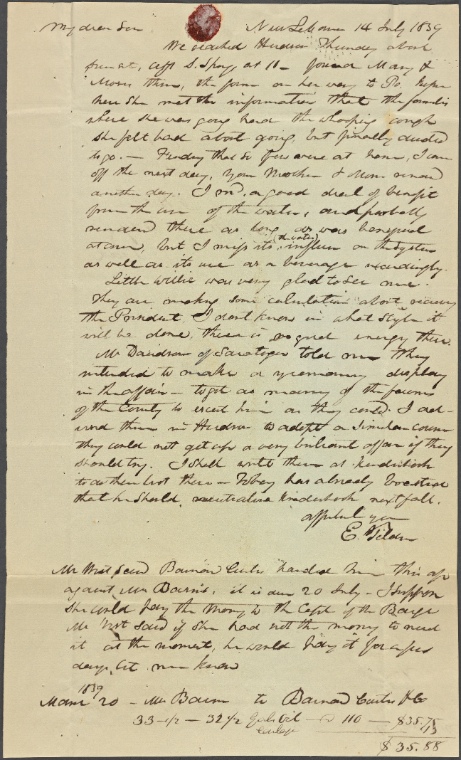 My dear Son New Lebanon 14 July 1839
We reached Hudson Thursday about
found Mary &
Moses there, the former on her way to Po,
here she met the information that the families
where she was going had the whooping cough
she felt bad about going, but finally decided
to go. — were at home, I came
off the next day, Your Mother & Moses remained
another day. I recd. a good deal of benefit
from the use of the water, and probably
remained there as long as was beneficial
at once, but I miss its influence on the system
the water
as well as its use as a beverage exceedingly.
Little Willie was very glad to see me.
They are making some calculations about receiving
the President I dont know in what style it
will be done, there is no great energy there.
Mr Davidson of Saratoga told me they
intended to make a display
in the affair — to get as many of the farmers
of the County to escort him as they could. I ad-
vised them in Hudson to adopt a similar course
they could not get up a very brilliant affair if they
should try. I shall write them at Kinderhook
to do their best there — has already
that he should Kinderhook next fall.
affectly your
E Tilden
Mr West said Barnard Curtis handed him this
against Mr Barns, it is due 20 July — I suppose
she could pay the money to the Capt of the Barge
Mr West said if she had not the money to meet
it at the moment, he would pay it for a few
days, let me know
1839
20 — Mr Barns to Barnard Curtis & Co
33-1/2 — 32 1/2 Gals Oil 110 — $35.75
13
$35.88